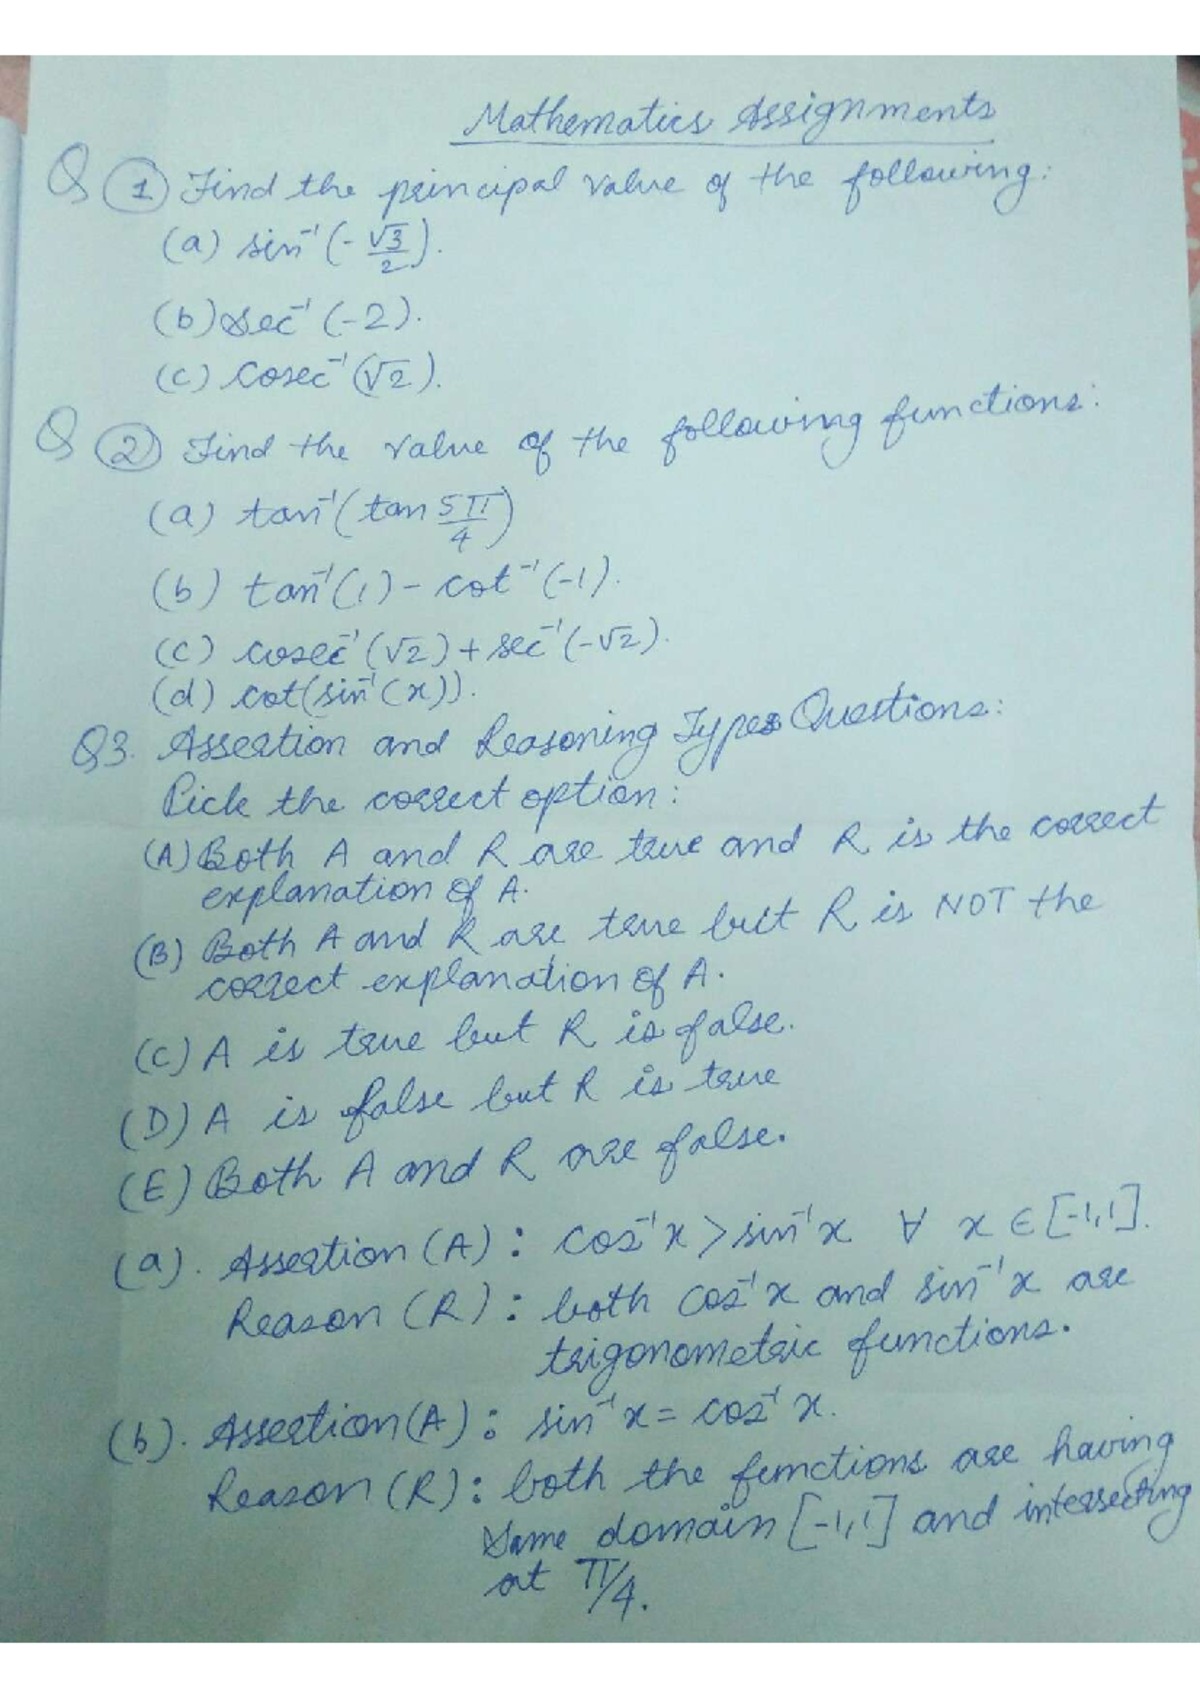 Mathematics Assignments
Q ① Find the principal value of the following:
(a) sin⁻¹(-√3/2).
(b) sec⁻¹(-2).
(c) Cosec⁻¹(√2).
Q ② Find the value of the following functions:
(a) tan⁻¹(tan 5π/4)
(b) tan⁻¹(1) - cot⁻¹(-1).
(c) cosec⁻¹(√2) + sec⁻¹(-√2).
(d) cot(sin⁻¹(x)).
Q3. Assertion and Reasoning Types Questions:
Pick the correct option:
(A) Both A and R are true and R is the correct
explanation of A.
(B) Both A and R are true but R is NOT the
correct explanation of A.
(C) A is true but R is false.
(D) A is false but R is true
(E) Both A and R are false.
(a). Assertion (A) : cos⁻¹x > sin⁻¹x ∀ x ∈ [-1,1].
Reason (R) : both cos⁻¹x and sin⁻¹x are
trigonometric functions.
(b). Assertion (A) : sin⁻¹x = cos⁻¹x.
Reason (R) : both the functions are having
Same domain [-1,1] and intersecting
at π/4.